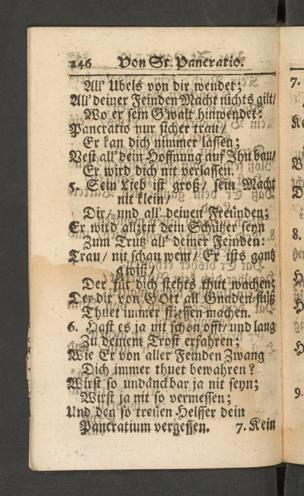 246 Von St. Pancratio.
All' Ubels von dir wendet;
All' deiner Feinden Macht nichts gilt/
Wo er sein G'walt hinwendet:
Pancratio nur sicher trau/
Er kan dich nimmer lassen;
Vest all' dein Hoffnung auf Ihn bau/
Er wird dich nit verlassen.
5. Sein Lieb ist groß/ sein Macht
nit klein/
Dir/ und all' deinen Freunden;
Er wird allzeit dein Schützer seyn
Zum Trutz all' deiner Feinden:
Trau/ nit schau wem/ Er ists gantz
g'wiß/
Der für dich stehts thut wachen;
Der dir von GOtt all Gnaden-flüß
Thuet immer fliessen machen.
6. Hast es ja nit schon offt/ und lang
Zu deinem Trost erfahren;
Wie Er von aller Feinden Zwang
Dich immer thuet bewahren?
Wirst so undanckbar ja nit seyn;
Wirst ja nit so vermessen;
Und den so treuen Helffer dein
Pancratium vergessen. 7. Kein
7.
8.
9.